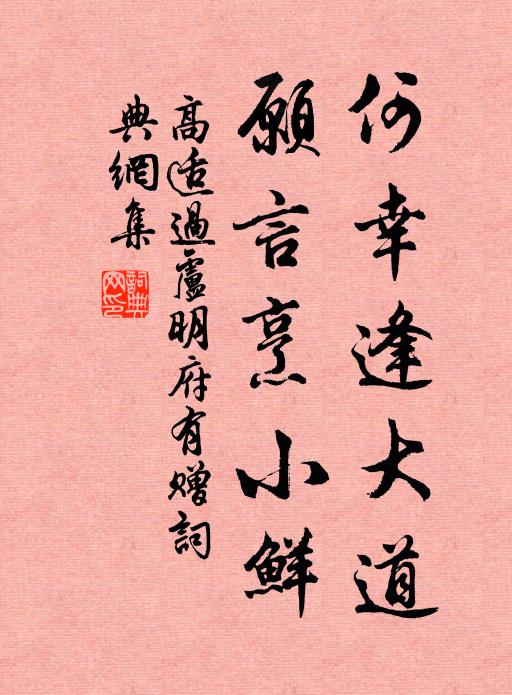 何幸逢大道
願言烹小鮮
高适過盧明府有贈詞
典網集
詞典網印